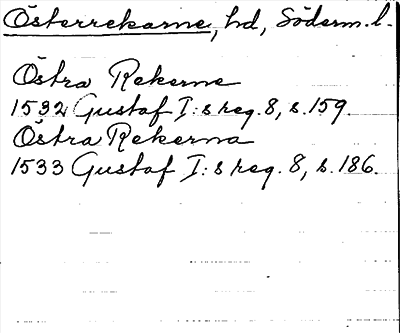 Österrekarne, hd, Söderm. l.
Östra Rekerne
1532 Gustaf I:s reg. 8, s. 159.
Östra Rekerna
1533 Gustaf I:s reg. 8, s. 186.